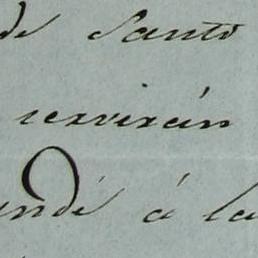 de Santo
servirán
andé á la